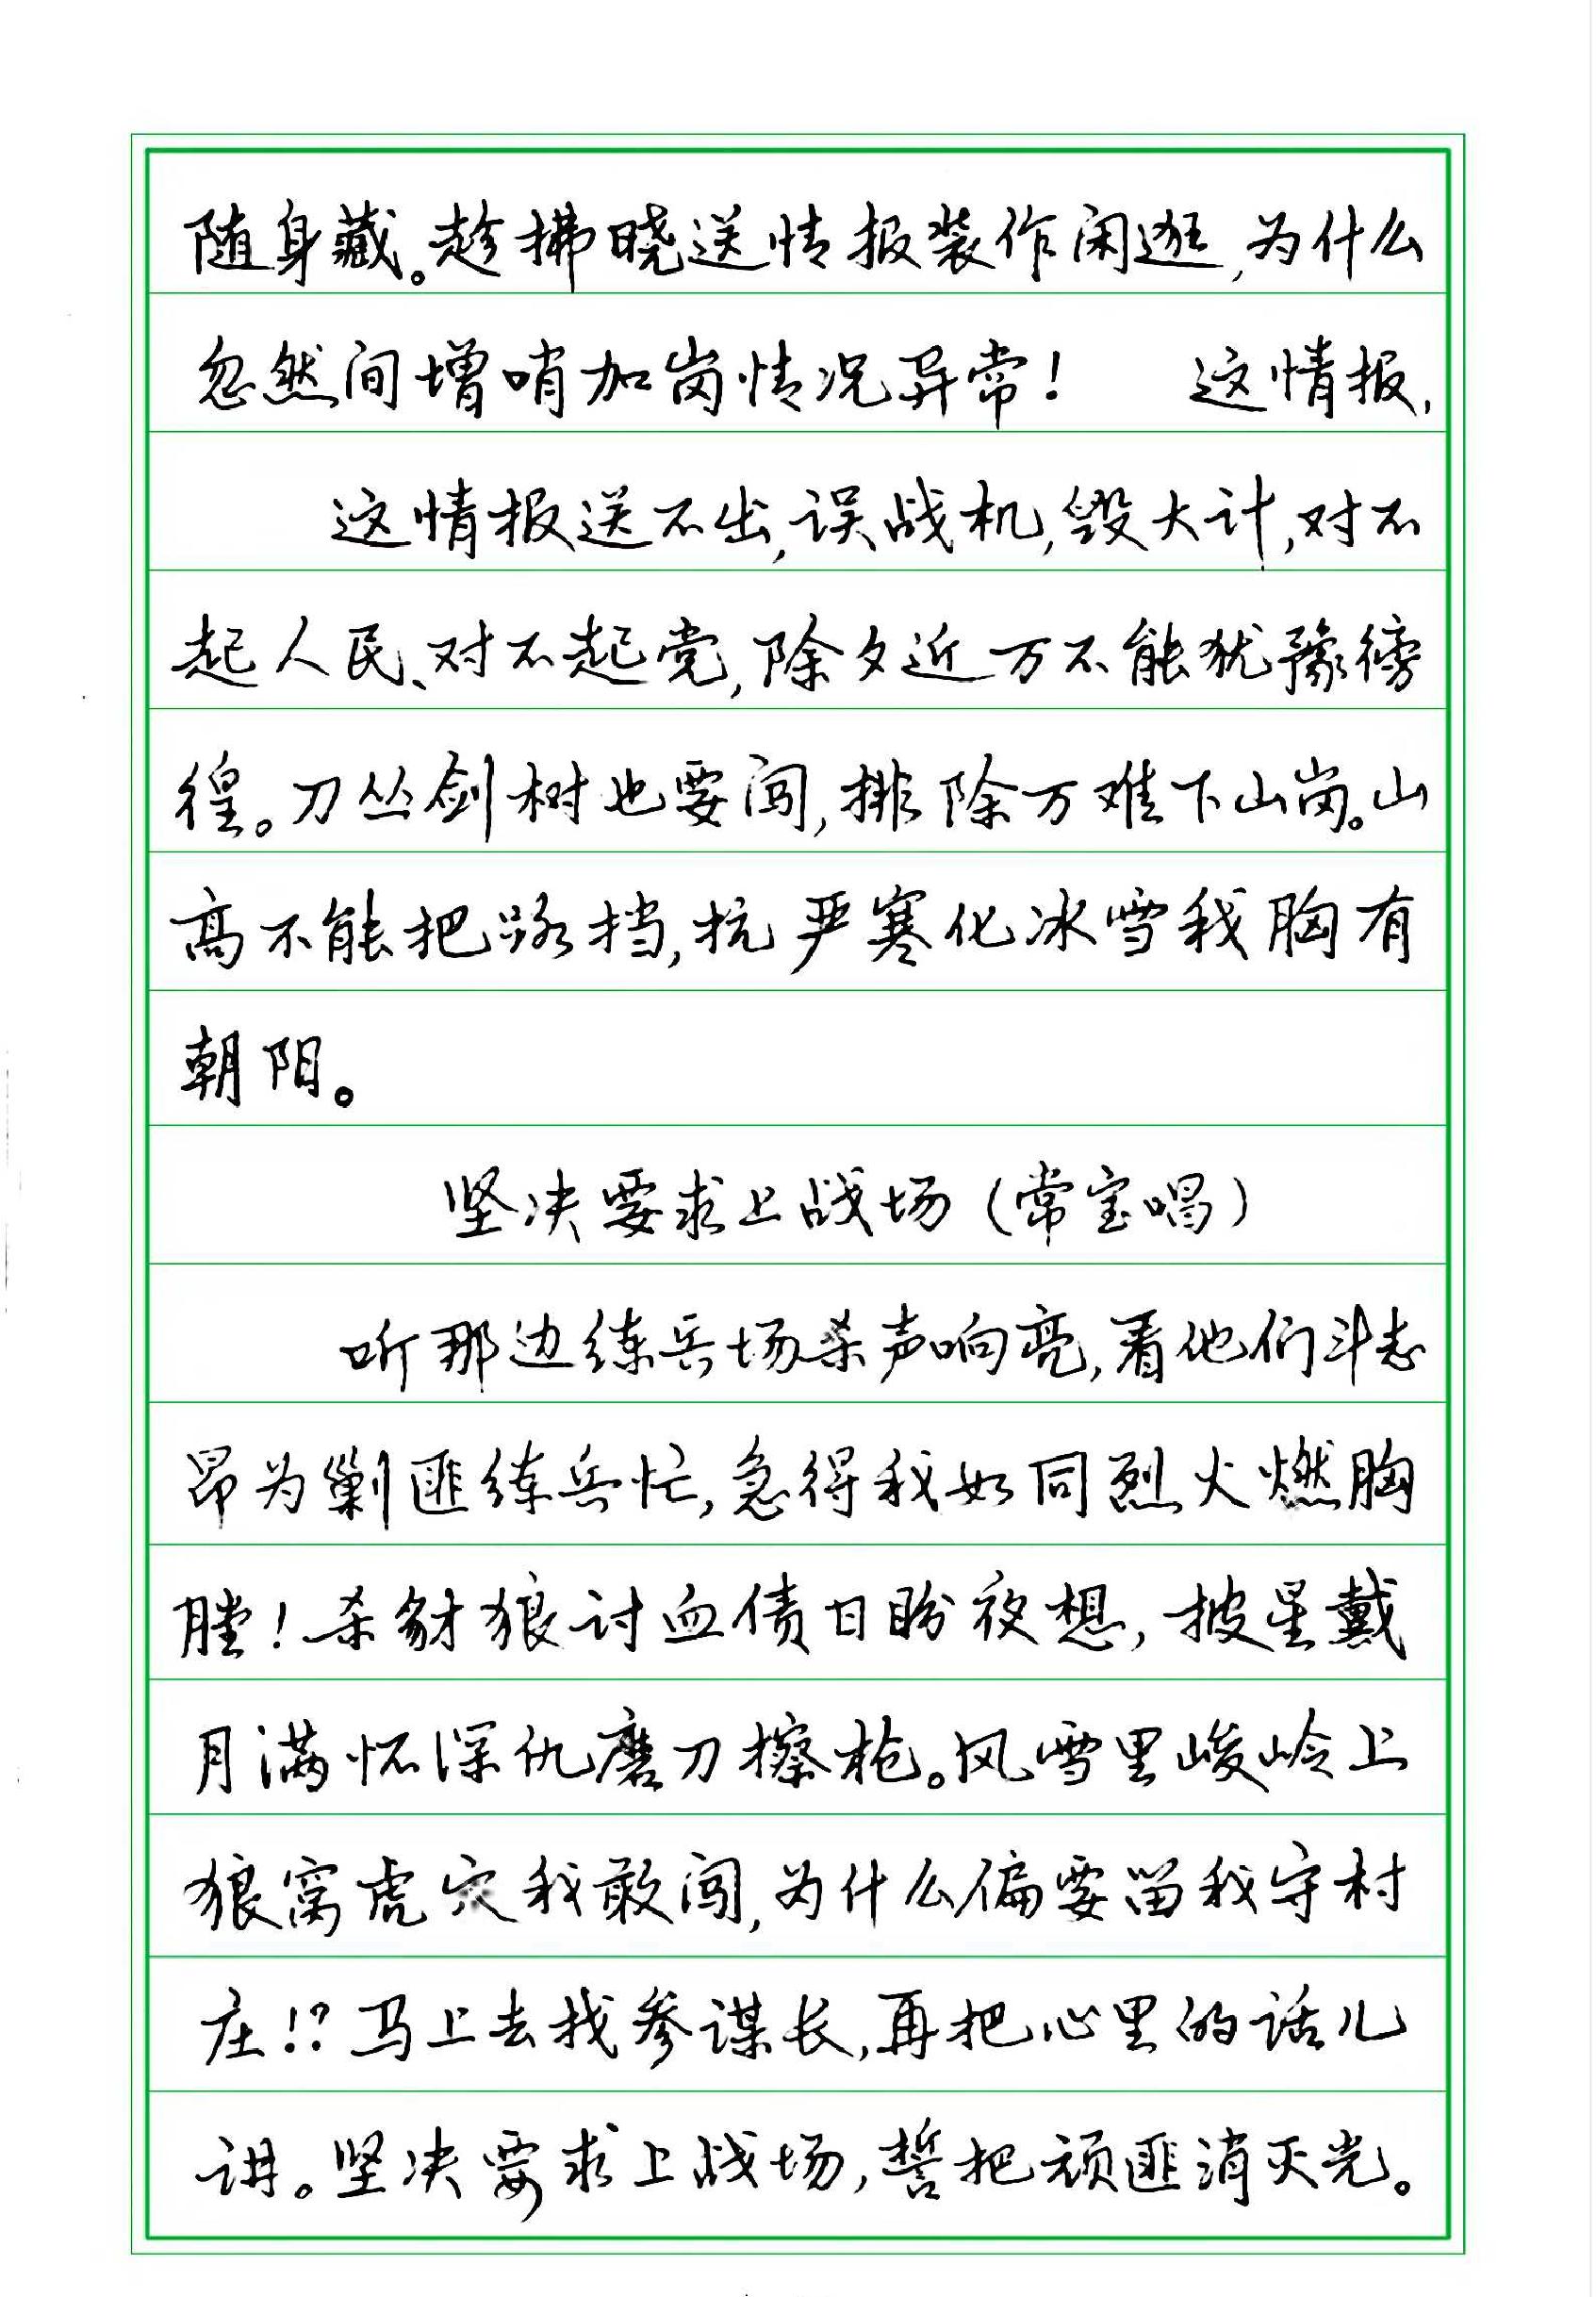 随身藏。趁拂晓送情报装作闲逛,为什么
忽然间增哨加岗情况异常! 这情报,
这情报送不出,误战机,毁大计,对不
起人民、对不起党,除夕近万不能犹豫徬
徨。刀丛剑树也要闯,排除万难下山岗。山
高不能把路挡,抗严寒化冰雪我胸有
朝阳。
坚决要求上战场(常宝唱)
听那边练兵场杀声响亮,看他们斗志
昂为剿匪练兵忙,急得我如同烈火燃胸
膛!杀豺狼讨血债日盼夜想,披星戴
月满怀深仇磨刀擦枪。风雪里峻岭上
狼窝虎穴我敢闯,为什么偏要留我守村
庄!?马上去找参谋长,再把心里的话儿
讲。坚决要求上战场,誓把顽匪消灭光。